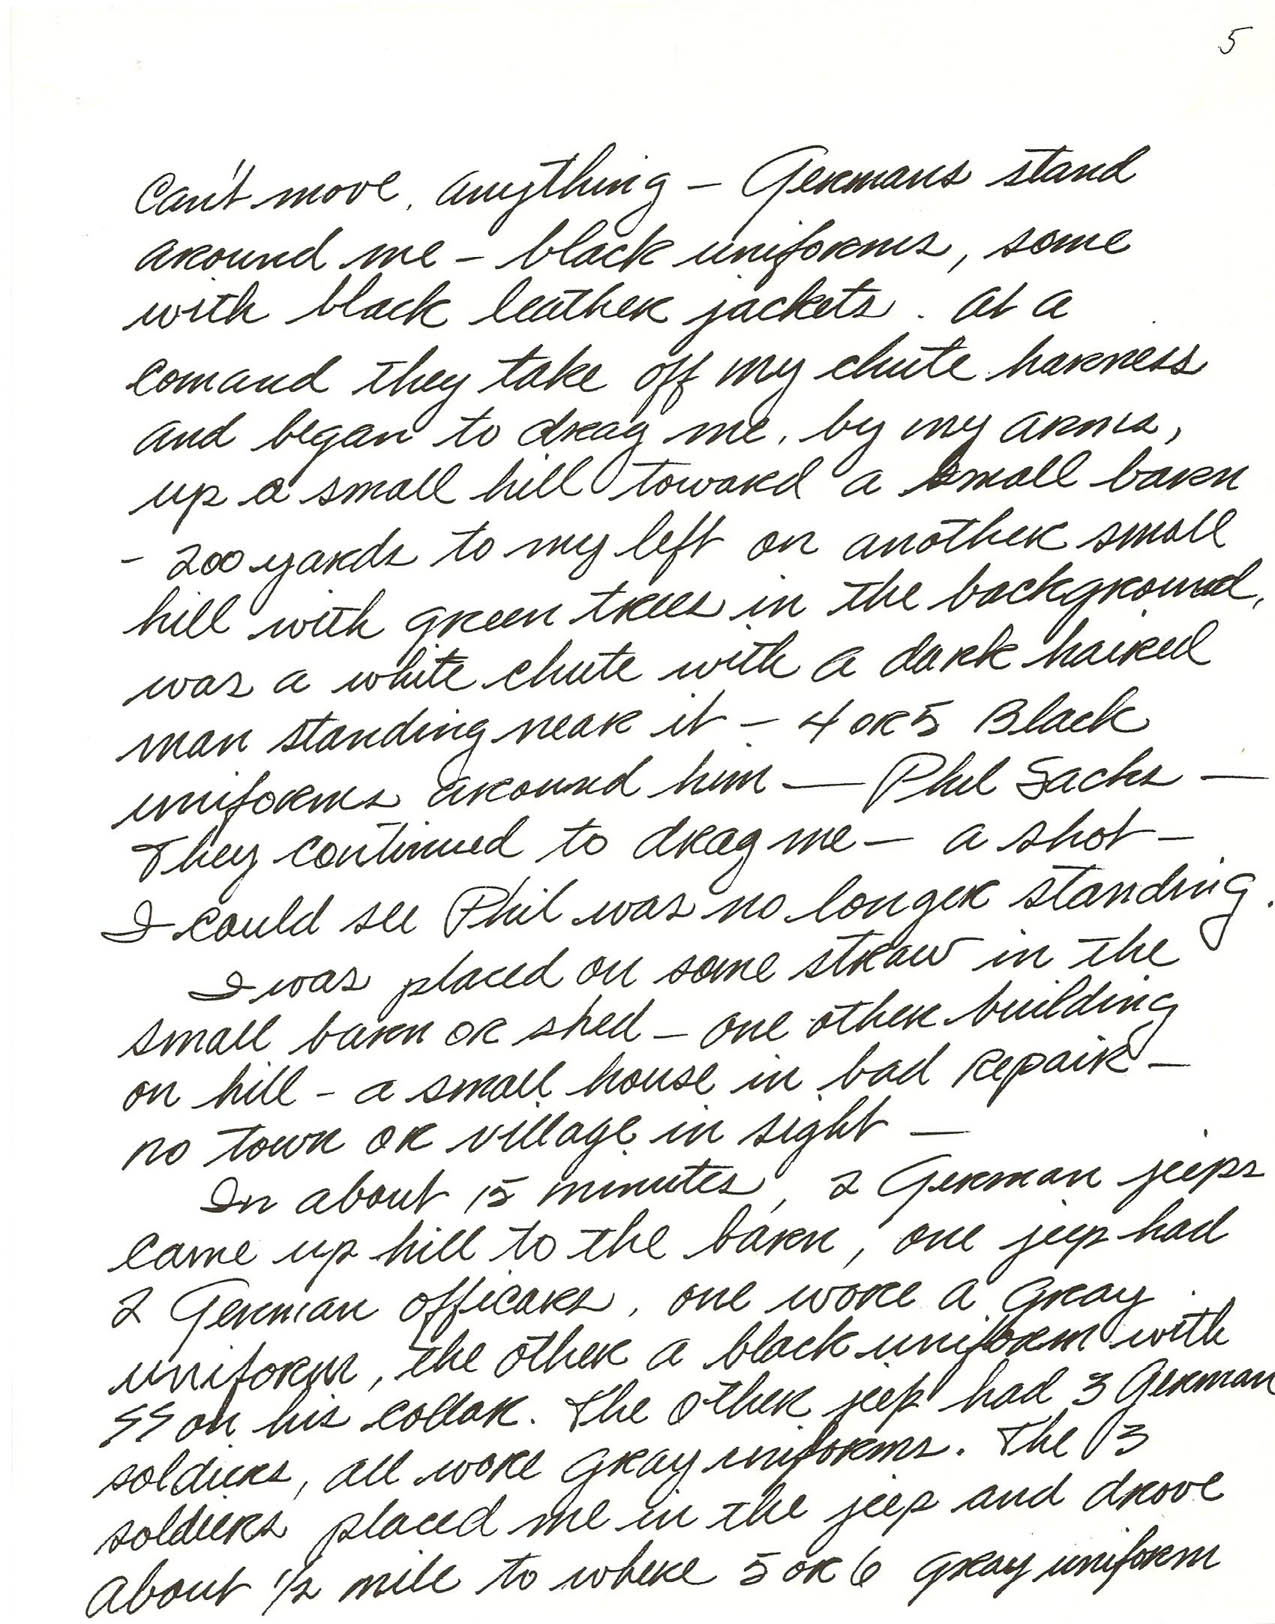 5
can't move. anything – Germans stand
around me – black uniforms, some
with black leather jackets. at a
comand they take off my chute harness
and began to drag me, by my arms,
up a small hill toward a small barn
– 200 yards to my left on another small
hill with green trees in the background,
was a white chute with a dark haired
man standing near it – 4 or 5 Black
uniforms around him — Phil Sachs —
They continued to drag me – a shot –
I could see Phil was no longer standing.
I was placed on some straw in the
small barn or shed – one other building
on hill – a small house in bad repair –
no town or village in sight —
In about 15 minutes, 2 German jeeps
came up hill to the barn, one jeep had
2 German officars, one wore a gray
uniform, the other a black uniform with
SS on his collar. The other jeep had 3 German
soldiers, all wore gray uniforms. The 3
soldiers placed me in the jeep and drove
about 1/2 mile to where 5 or 6 gray uniform